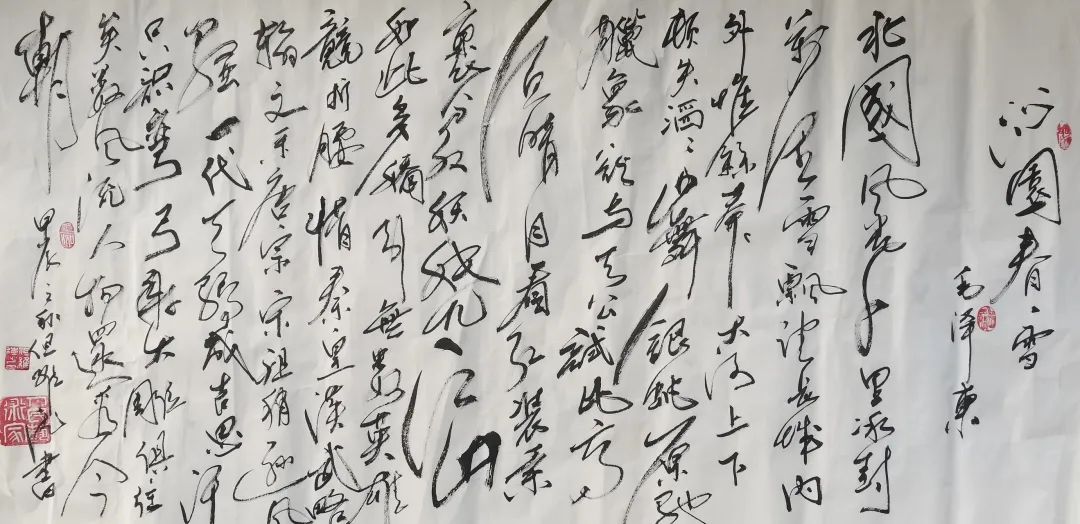 沁園春雪
毛澤東
北國风光千里冰封
萬里雪飄望長城内
外惟餘莽莽大河上下
頓失滔滔山舞銀蛇原馳
蠟象欲与天公試比高
须晴日看红装素
裹分外妖娆江山
如此多嬌引無数英雄
競折腰惜秦皇漢武略
输文采唐宗宋祖稍逊风
骚一代天骄成吉思汗
只識彎弓射大雕俱往
矣数风流人物還看今
朝
甲辰之秋書